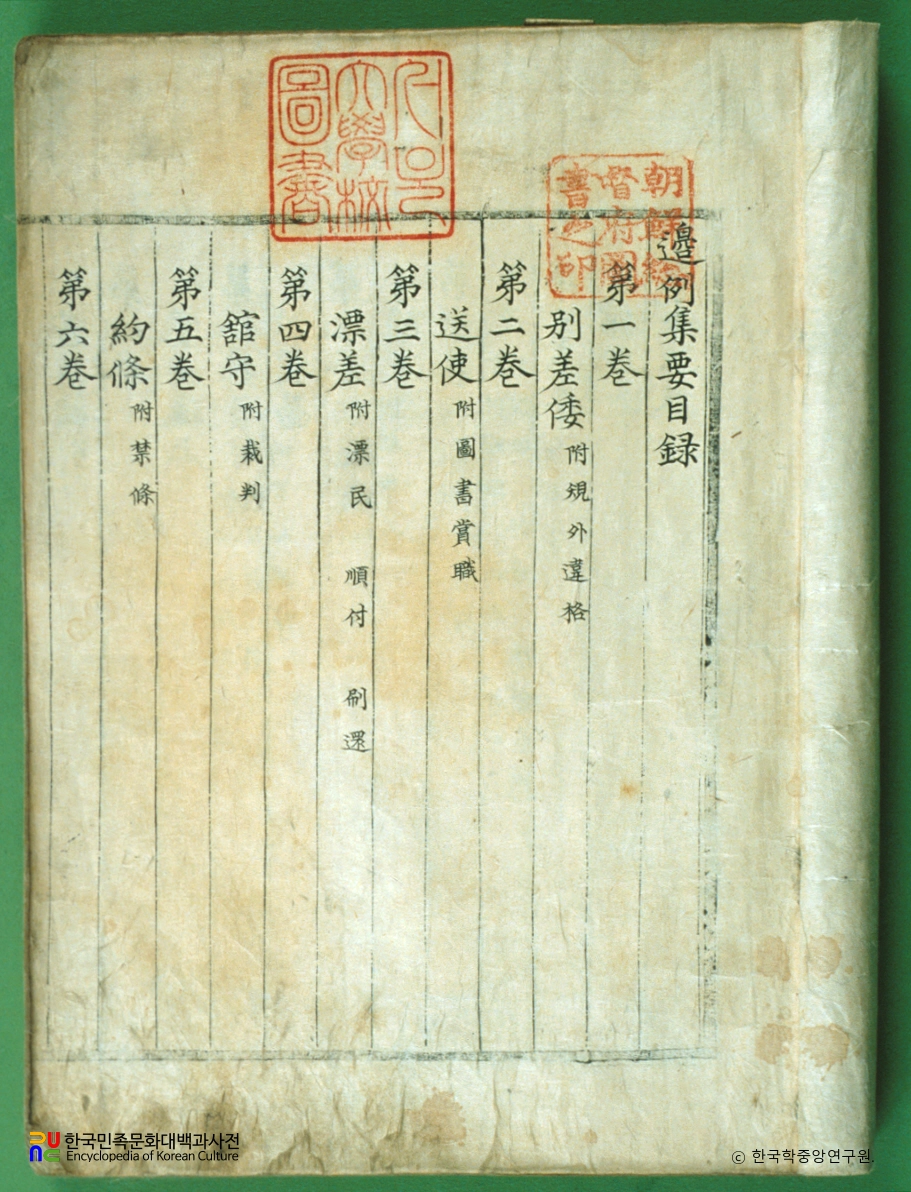 邊例集要目録
第一巻
別差倭 附規外違格
第二巻
送使 附圖書賞職
第三巻
漂差 附漂民 順付 刷還
第四巻
舘守 附裁判
第五巻
約條 附禁條
第六巻
朝鮮總
督府圖
書之印
大學校
圖書
한국민족문화대백과사전
Encyclopedia of Korean Culture
ⓒ 한국학중앙연구원.